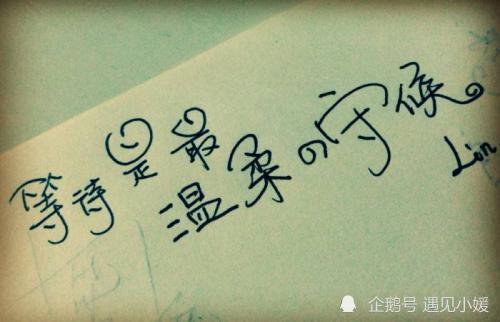 等待是最
温柔の守候。
Lin
企鹅号 遇见小媛